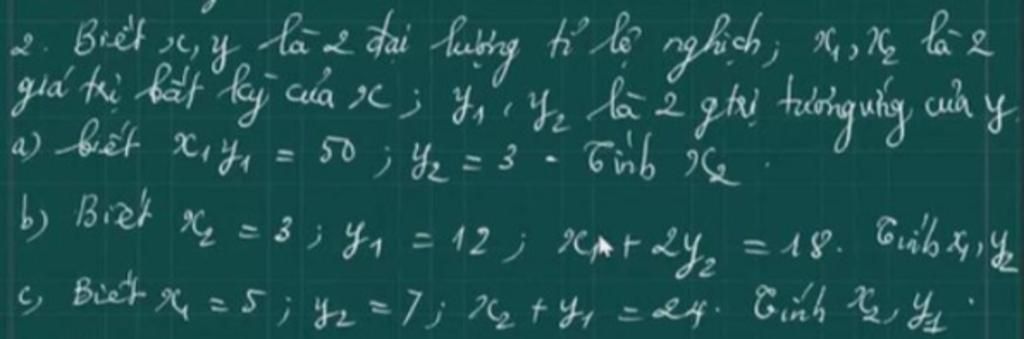 2. Biết x, y là 2 đại lượng tỉ lệ nghịch; x₁, x₂ là 2
giá trị bất kỳ của x; y₁, y₂ là 2 gtrị tương ứng của y.
a) biết x₁y₁ = 50; y₂ = 3. Tính x₂.
b) Biết x₂ = 3; y₁ = 12; x₁ + 2y₂ = 18. Tính x₁, y₂
c, Biết x₁ = 5; y₂ = 7; x₂ + y₁ = 24. Tính x₂, y₁.